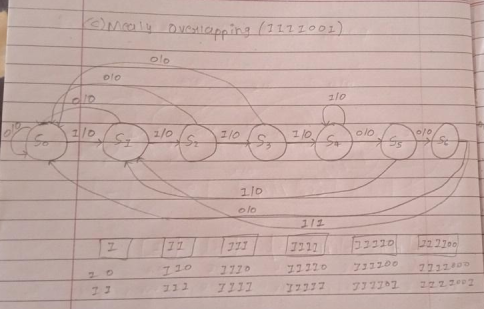 (c) Mealy Overlapping (1111001)
0/0
0/0
0/0
1/0
0/0 S0 1/0 S1 1/0 S2 1/0 S3 1/0 S4 0/0 S5 0/0 S6
1/0
0/0
1/1
1 11 111 1111 11110 111100
10 110 1110 11110 111100 1111000
11 111 1111 11111 111101 1111001